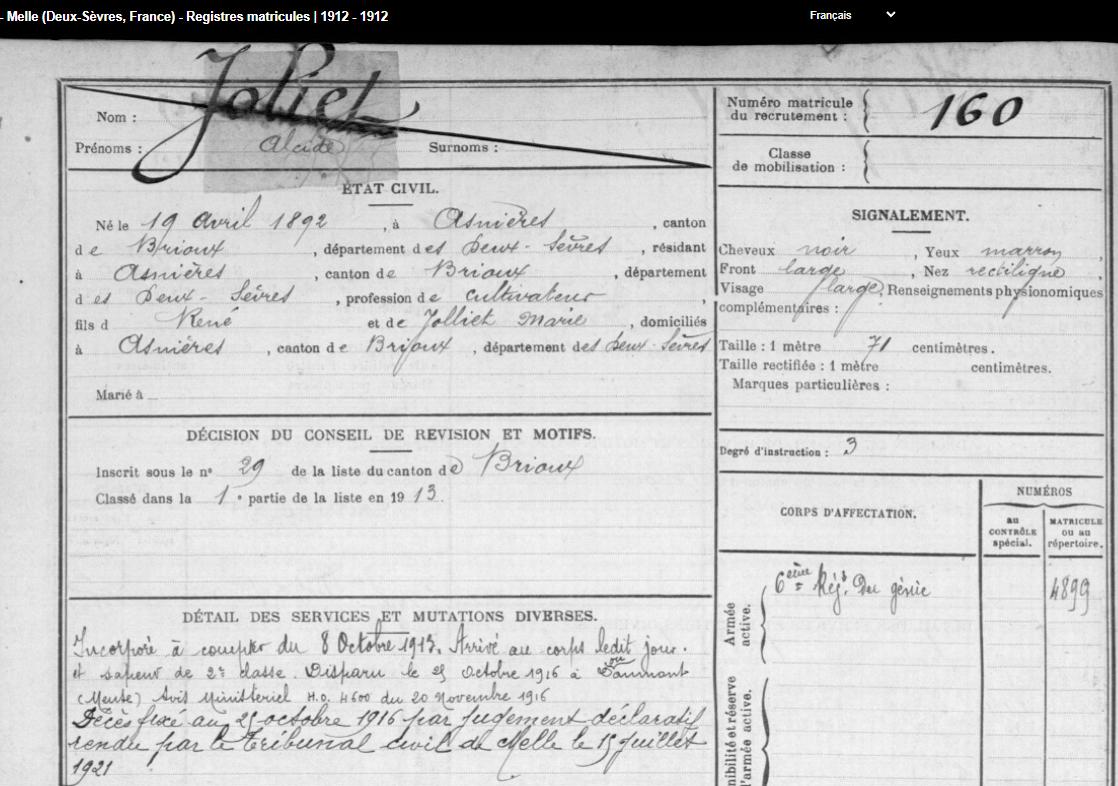 - Melle (Deux-Sèvres, France) - Registres matricules | 1912 - 1912
Français
Joliet
Nom :
Prénoms : Alcide Surnoms :
ÉTAT CIVIL.
Né le 19 Avril 1892, à Asnières, canton
de Brioux, département des Deux-Sèvres, résidant
à Asnières, canton de Brioux, département
des Deux-Sèvres, profession de cultivateur,
fils d René et de Jolliet Marie, domiciliés
à Asnières, canton de Brioux, département des Deux-Sèvres
Marié à
DÉCISION DU CONSEIL DE REVISION ET MOTIFS.
Inscrit sous le n° 29 de la liste du canton de Brioux
Classé dans la 1e partie de la liste en 1913.
DÉTAIL DES SERVICES ET MUTATIONS DIVERSES.
Incorporé à compter du 8 Octobre 1913. Arrivé au corps ledit jour.
et sapeur de 2e classe. Disparu le 25 Octobre 1916 à
(Meuse) Avis Ministeriel H.O. 4600 du 20 Novembre 1916
Décès fixé au 25 octobre 1916 par jugement déclaratif
rendu par le Tribunal civil de Melle le 15 juillet
1921
Numéro matricule
du recrutement : 160
Classe
de mobilisation :
SIGNALEMENT.
Cheveux noir, Yeux marron,
Front large, Nez rectiligne,
Visage large, Renseignements physionomiques
complémentaires :
Taille : 1 mètre 71 centimètres.
Taille rectifiée : 1 mètre centimètres.
Marques particulières :
Degré d'instruction : 3
CORPS D'AFFECTATION.
NUMÉROS
au
CONTRÔLE
spécial.
MATRICULE
ou au
répertoire.
Armée
active.
6ème Régt Du génie
4899
nibilité et réserve
l'armée active.